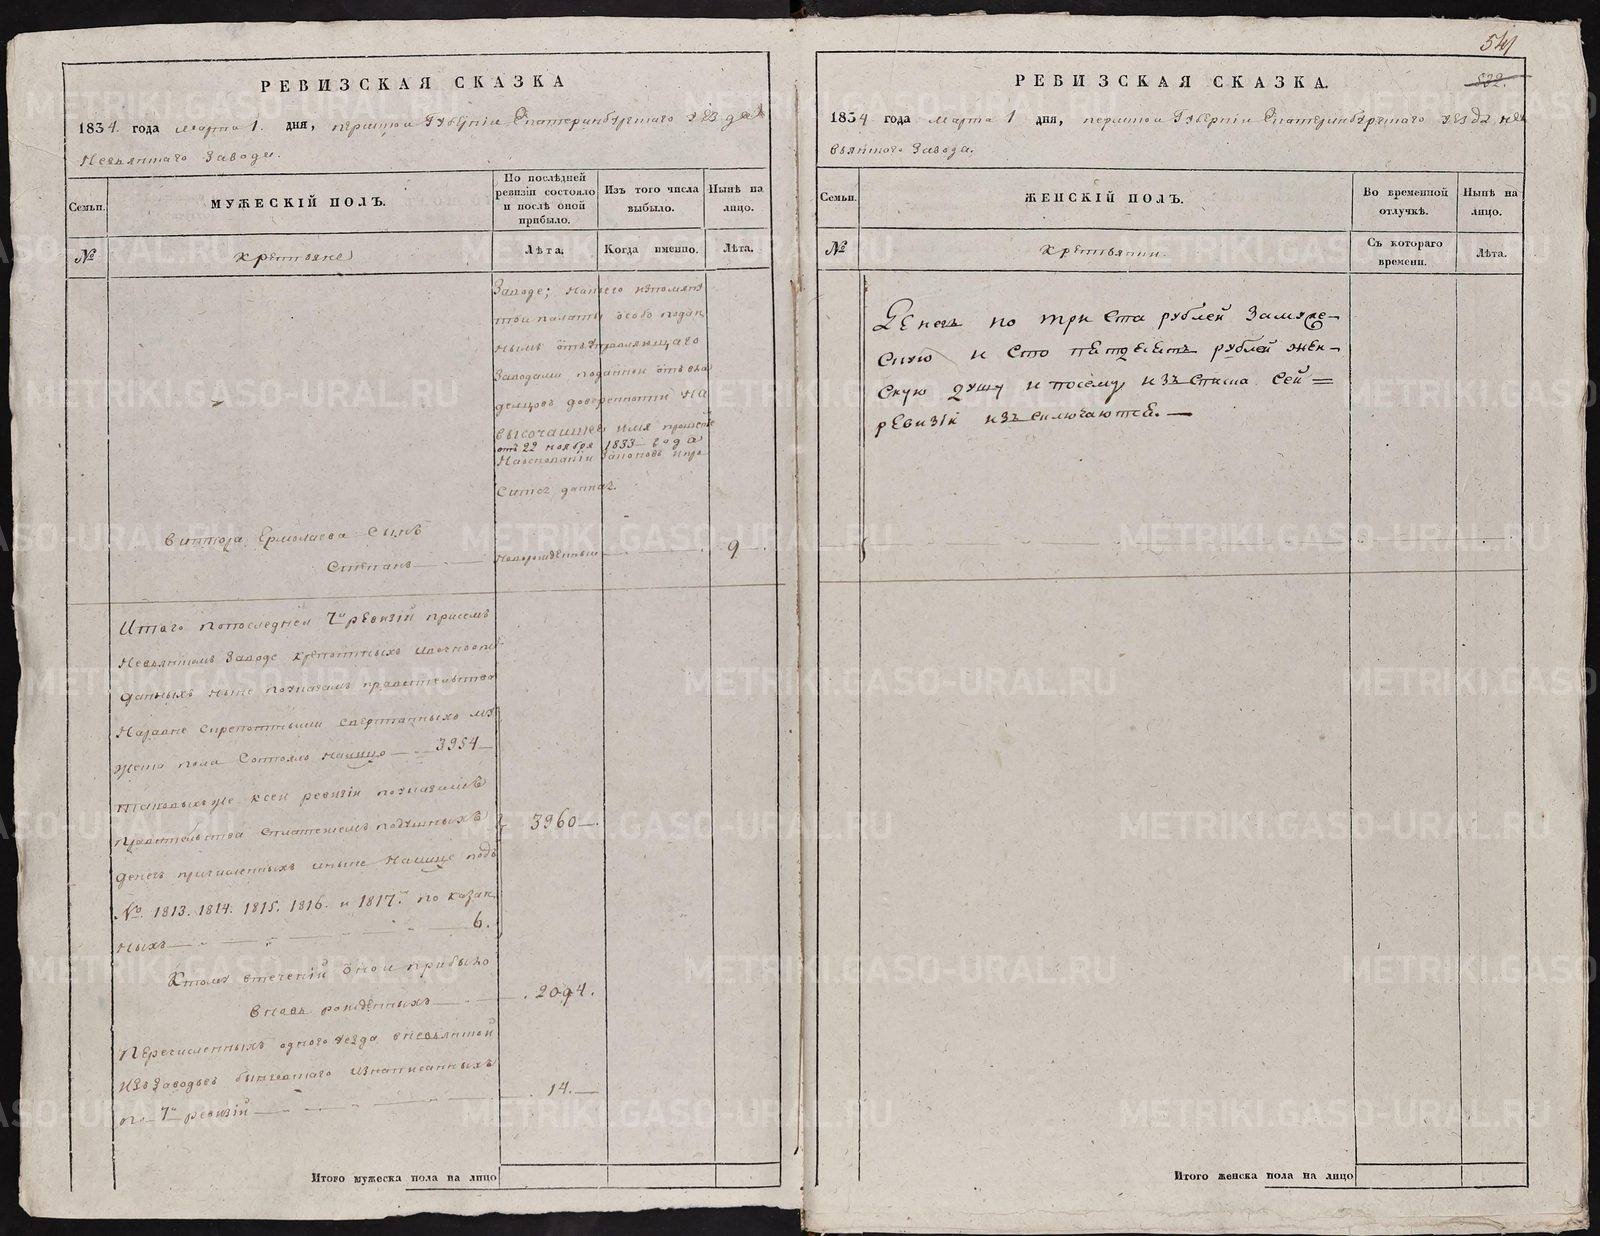 РЕВИЗСКАЯ СКАЗКА
1834. года марта 1. дня, пермской Губернiи Екатеринбургского уѣзда
Невьянскаго Завода.
Семьи.
МУЖЕСКIЙ ПОЛЪ.
По послѣдней ревизiи состояло и послѣ оной прибыло.
Изъ того числа выбыло.
Нынѣ на лицо.
№
крестьяне
Лѣта.
Когда именно.
Лѣта.
Заводе;
особо подан
нымъ отъ управляющаго
Заводами поданной отъ вла
дельцовъ доверенности На
высочайшее имя прошенiе
отъ 22 ноября 1833 года
На основанiи Законовъ
Виктора Ермолаева сынъ
Степанъ
новорожденный
9
Итого по последней 7й ревизiи при семъ
Невьянскомъ Заводе крепостныхъ
данныхъ ныне по указамъ правительства
Наравне с крепостными мужеска пола Состояло налицо 3954
таковыхъ же к сей ревизiи по указамъ
правительства с платежемъ подушныхъ
денегъ причисленныхъ и ныне налице подъ
№ 1813. 1814. 1815. 1816. и 1817. показан
ныхъ 6.
3960
К тому в теченiй оной прибыло
вновь рожденныхъ
2094.
Перечисленныхъ одного уезда в невьянской
изъ Заводовъ
по 7й ревизiй
14.
Итого мужеска пола на лицо
541
532.
РЕВИЗСКАЯ СКАЗКА.
1834 года марта 1 дня, пермской Губернiи Екатеринбургского уезда Не
вьянскаго Завода.
Семьи.
ЖЕНСКIЙ ПОЛЪ.
Во временной отлучкѣ.
Нынѣ на лицо.
№
крестьянки.
Съ котораго времени.
Лѣта.
Денегъ по три ста рублей За муже-
скую и сто петдесятъ рублей жен-
скую душу и посему изъ списка сей =
ревизiи изъключаются. —
Итого женска пола на лицо